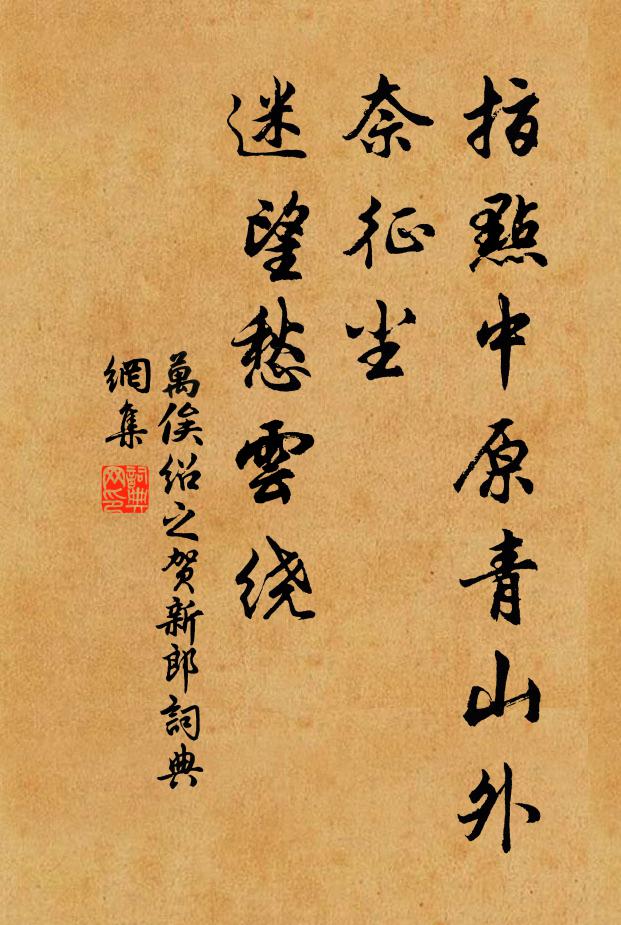 指點中原青山外
奈征尘
迷望愁雲绕
萬俟绍之贺新郎詞典
網集
詞典
网印